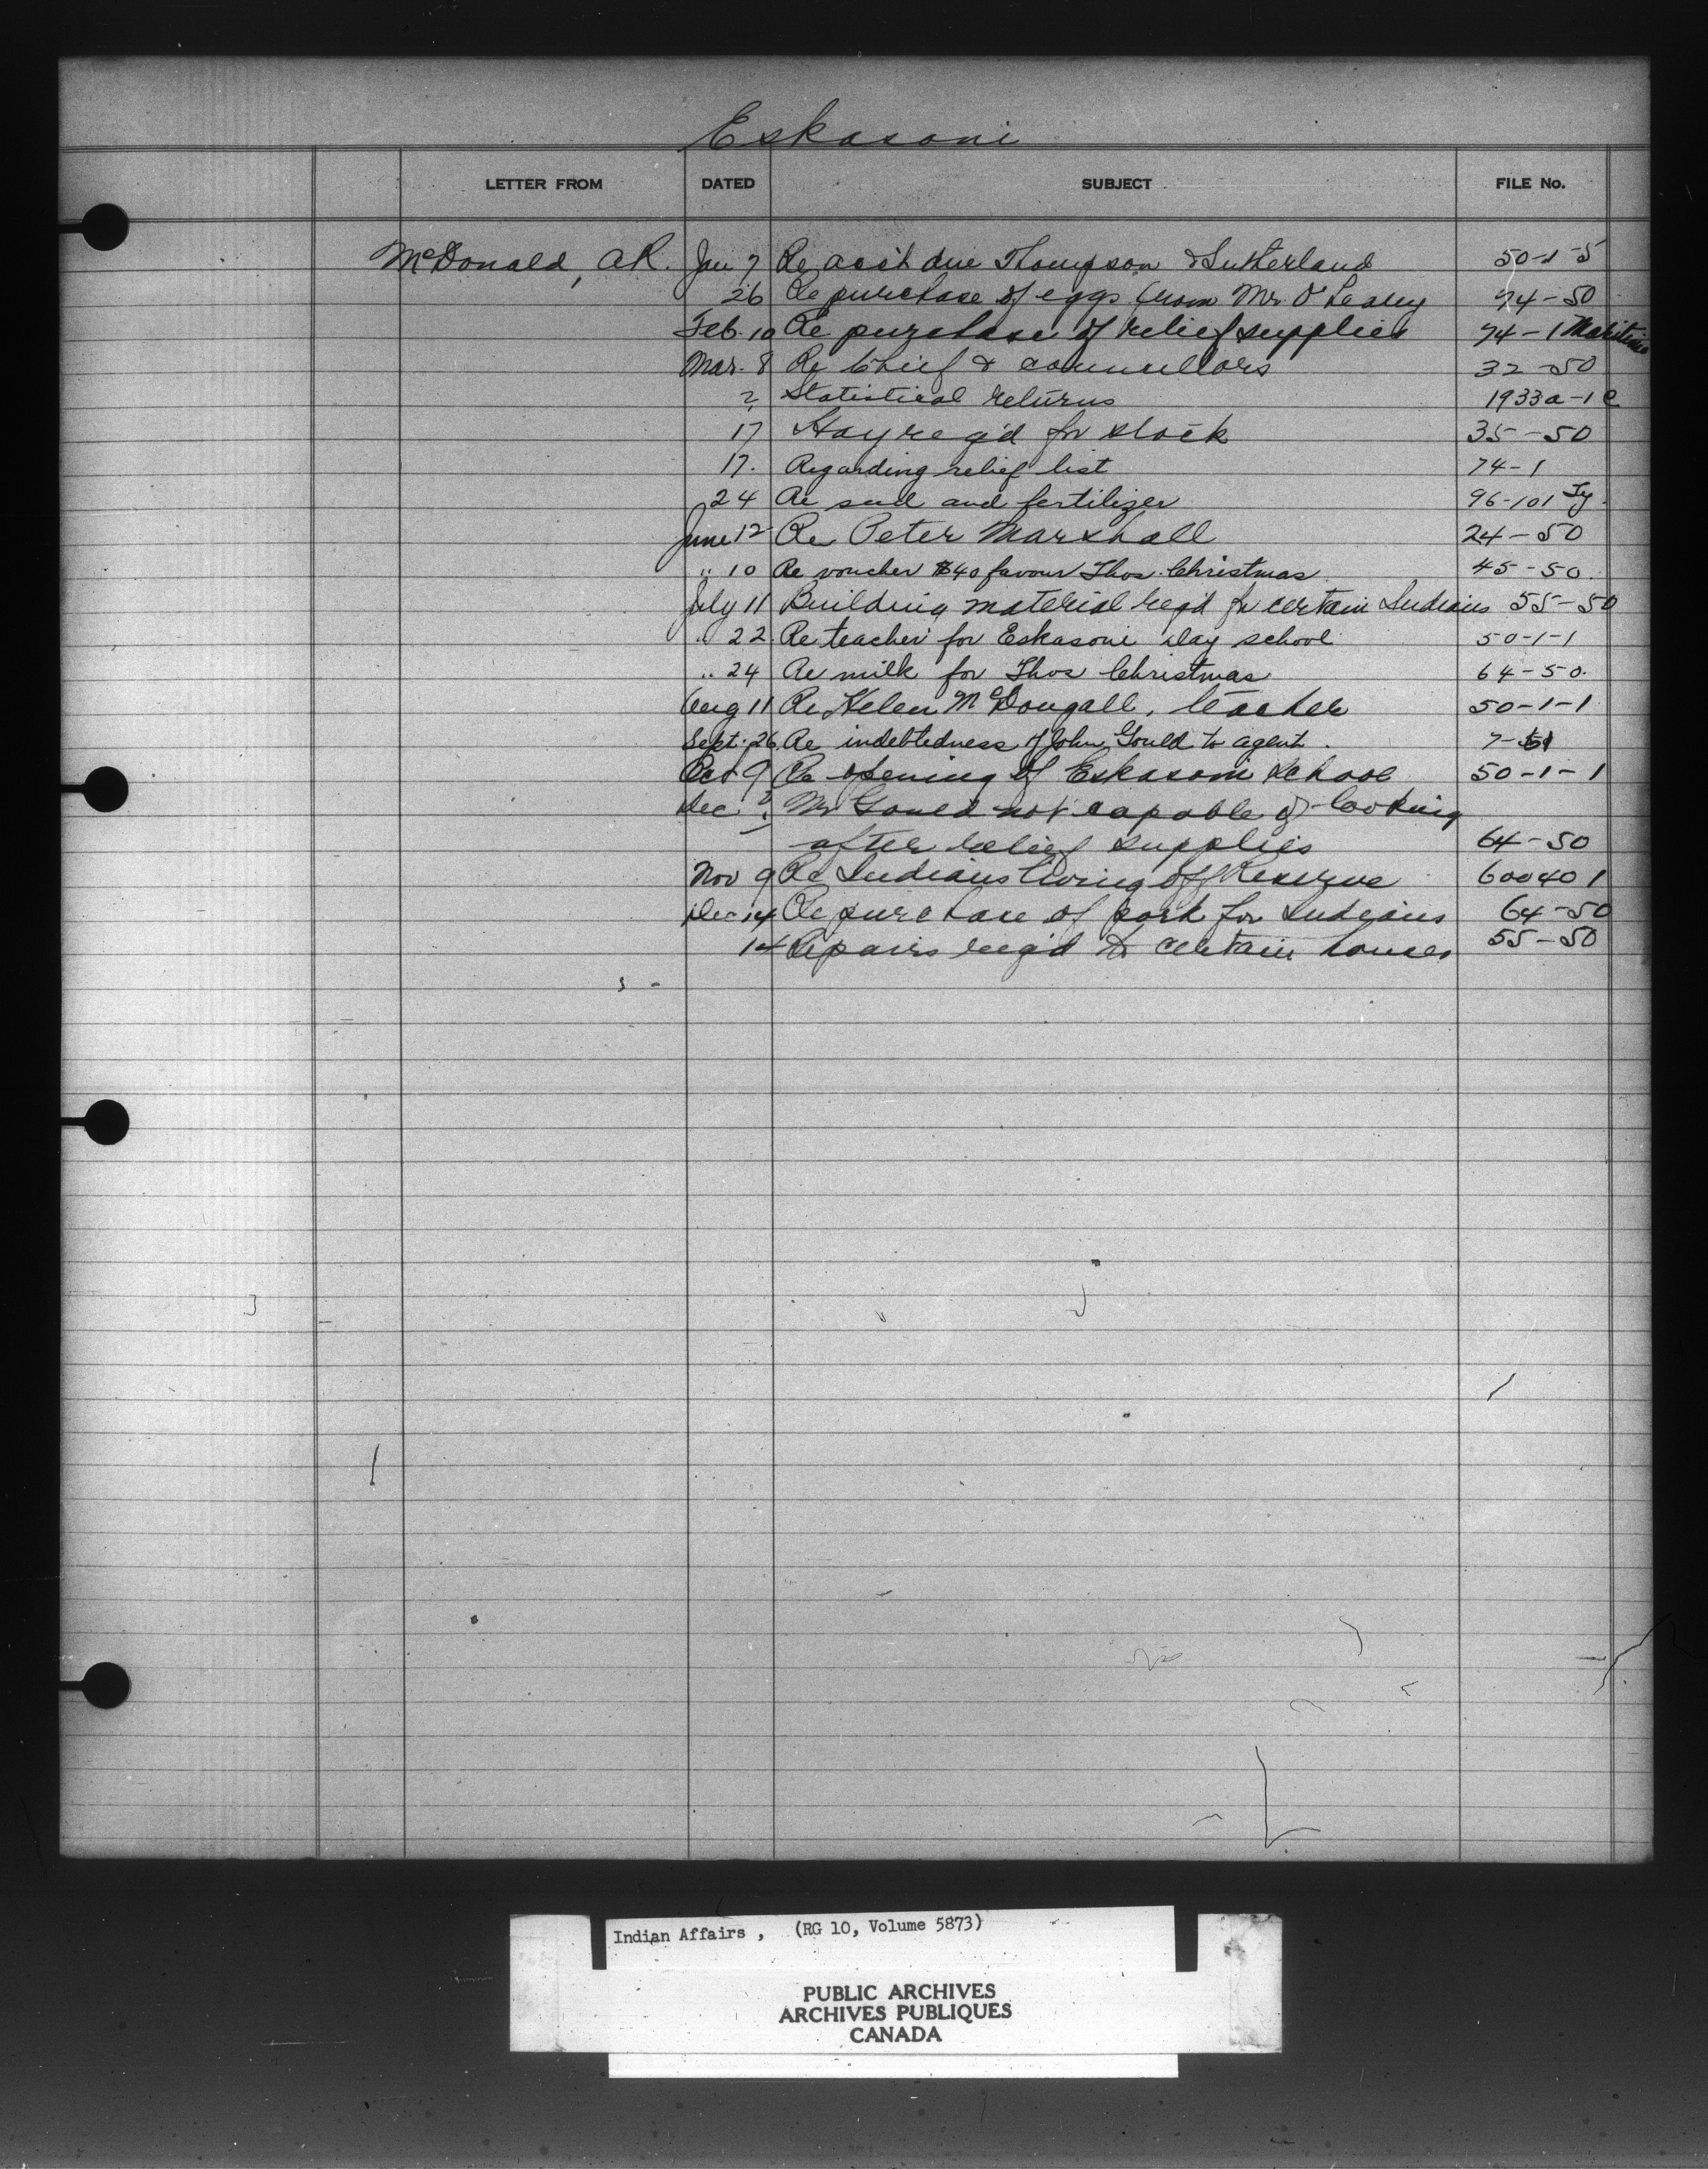 Eskasoni
LETTER FROM DATED SUBJECT FILE No.
McDonald, A.R. Jan 7 Re acc't due Thompson & Sutherland 50-1-5
26 Re purchase of eggs from Mr. O'Leary 74-50
Feb. 10 Re purchase of relief supplies 74-1 Maritime
Mar. 8 Re Chief & councillors 32-50
? Statistical returns 1933a-1 e
17 Hay req'd for stock 35-50
17. Regarding relief list 74-1
24 Re seed and fertilizer 96-101
June 12 Re Peter Marshall 24-50
" 10 Re voucher $40 favour Thos. Christmas 45-50.
July 11 Building material req'd for certain Indians 55-50
" 22. Re teacher for Eskasoni day school 50-1-1
" 24 Re milk for Thos Christmas 64-50.
Aug 11 Re Helen McDougall, teacher 50-1-1
Sept. 26 Re indebtedness of John Gould to agent. 7-51
Oct 9 Re opening of Eskasoni school 50-1-1
Dec ? Mr Gould not capable of looking
after relief supplies 64-50
Nov 9 Re Indians living off Reserve 600401
Dec 14 Re purchase of pork for Indians 64-50
14 Repairs req'd to certain houses 55-50
Indian Affairs, (RG 10, Volume 5873)
PUBLIC ARCHIVES
ARCHIVES PUBLIQUES
CANADA